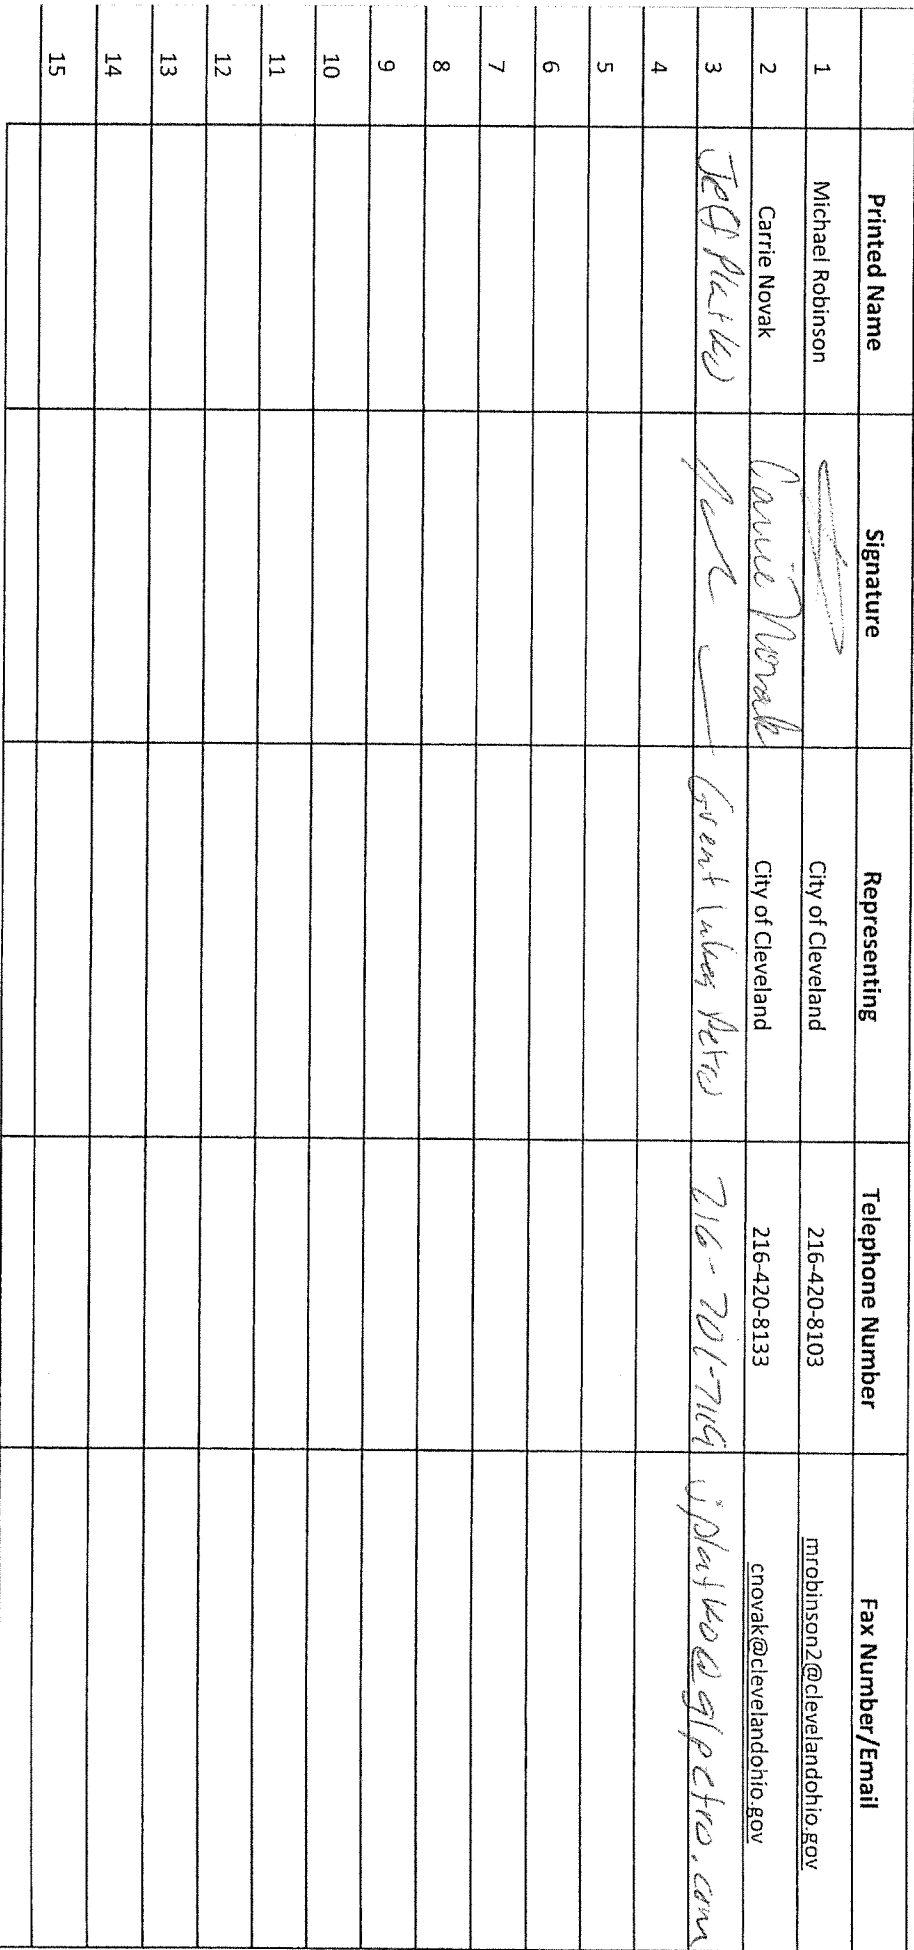 Printed Name Signature Representing Telephone Number Fax Number/Email
1 Michael Robinson City of Cleveland 216-420-8103 mrobinson2@clevelandohio.gov
2 Carrie Novak Carrie Novak City of Cleveland 216-420-8133 cnovak@clevelandohio.gov
3 Jeff Platko Great Lakes Petro 216-701-7169 jplatko@glpetro.com
4
5
6
7
8
9
10
11
12
13
14
15